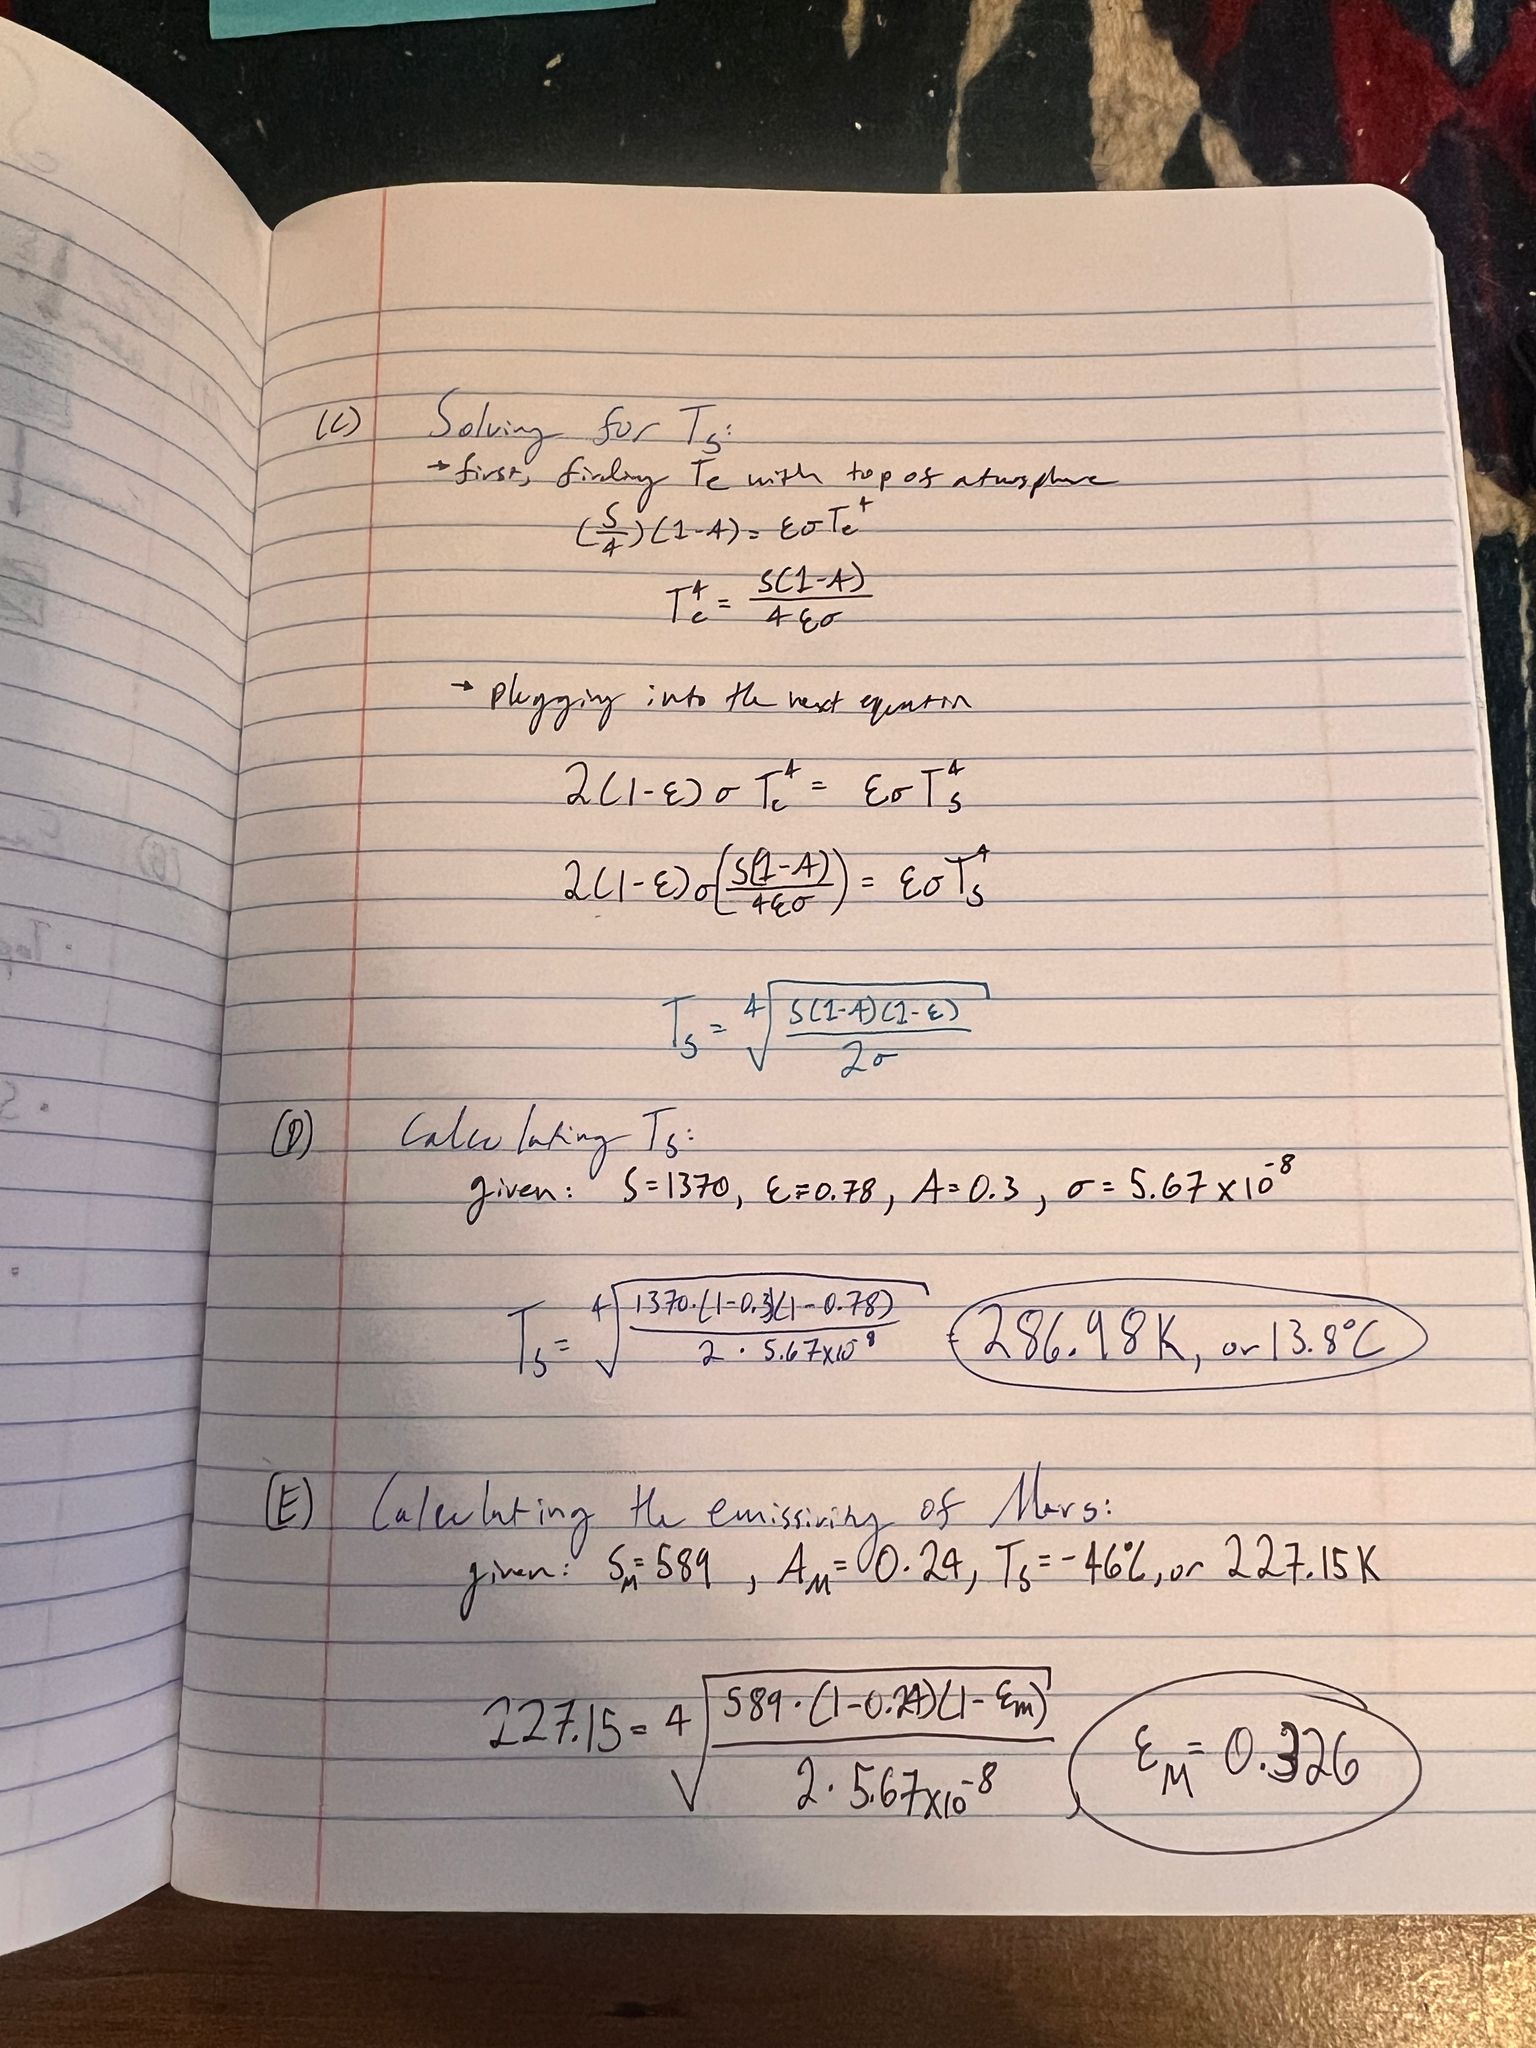 (C) Solving for Ts:
→ first, finding Te with top of atmosphere
(S/4)(1-A) = εσTe⁴
Te⁴ = S(1-A) / 4εσ
→ plugging into the next equation
2(1-ε)σTe⁴ = εσTs⁴
2(1-ε)σ(S(1-A) / 4εσ) = εσTs⁴
Ts = ⁴√(S(1-A)(1-ε) / 2σ)
(D) Calculating Ts:
given: S=1370, ε=0.78, A=0.3, σ=5.67x10⁻⁸
Ts = ⁴√(1370·(1-0.3)(1-0.78) / 2·5.67x10⁻⁸) = 286.98K, or 13.8°C
(E) Calculating the emissivity of Mars:
given: S_M=589, A_M=0.24, Ts=-46°C, or 227.15K
227.15 = ⁴√(589·(1-0.24)(1-εm) / 2·5.67x10⁻⁸), ε_M=0.326